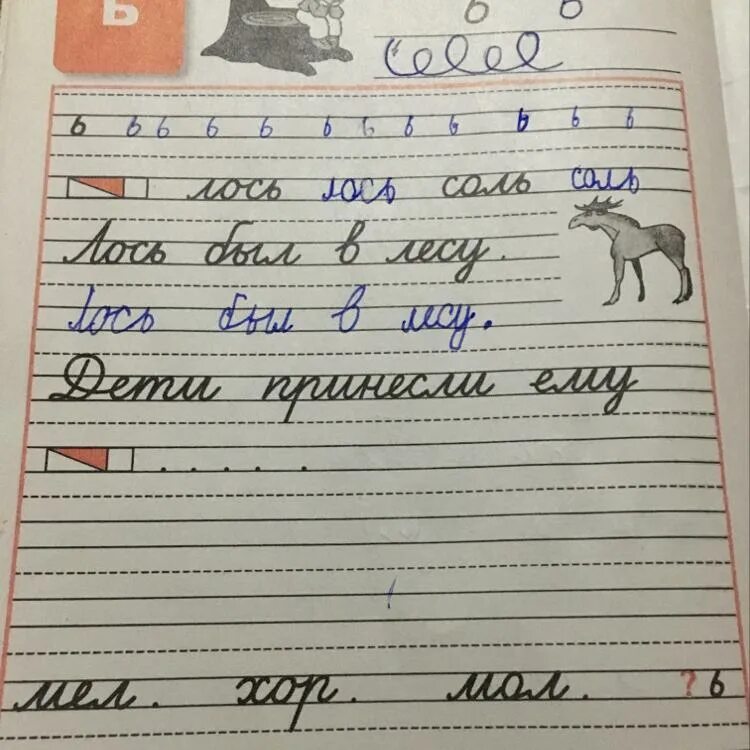 ь
ь ь
ь ь ь ь ь ь ь ь ь ь ь ь
лось лось соль соль
Лось был в лесу.
Лось был в лесу.
Дети принесли ему
. . . . .
мел. хор. мол. ? ь